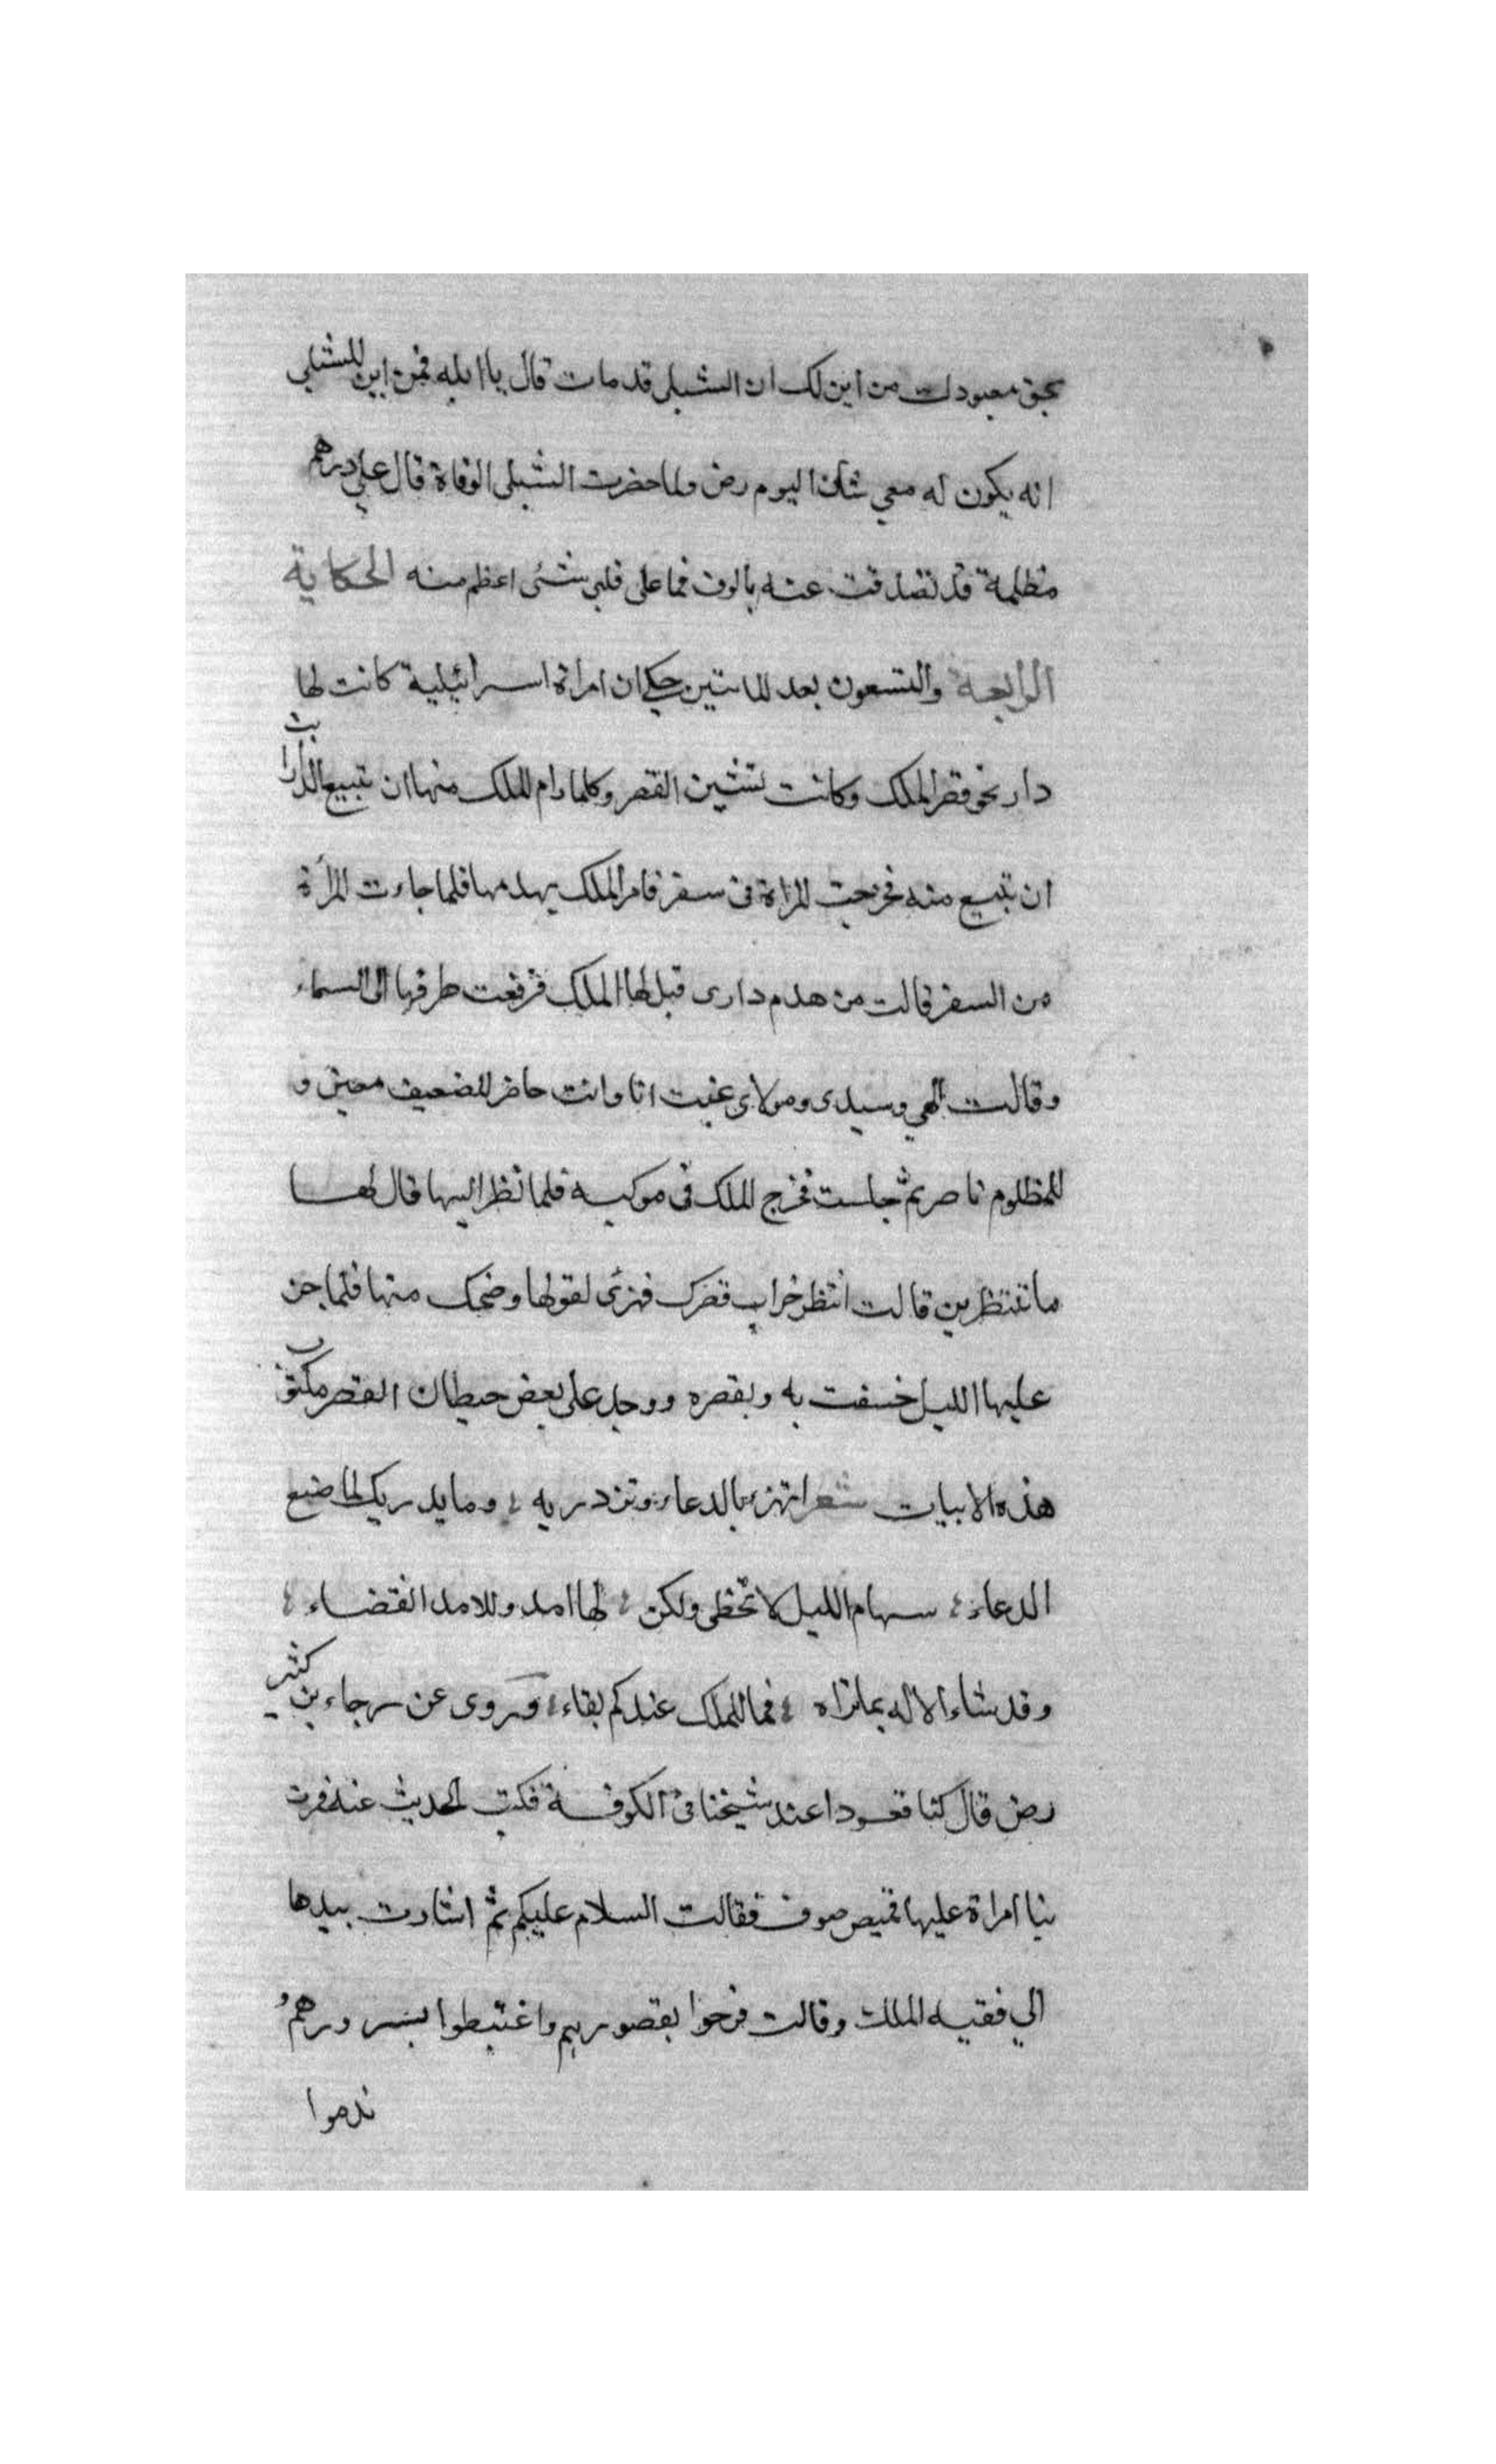 بحق معبودك من اين لك ان الشبلى قد مات قال يا ابله فمن اين للشبلي
انه يكون له معي شان اليوم رض ولما حضرت الشبلى الوفاة قال علي درهم
مظلمة قد تصدقت عنه بالوف فما على قلبى شئى اعظم منه الحكاية
الرابعة والتسعون بعد الماتين حكى ان امراة اسرائيلية كانت لها
دار نحو قصر الملك وكانت تشين القصر وكلما رام الملك منها ان تبيع الدار ابت
ان تبيع منه فخرجت المراة فى سفر فامر الملك بهدمها فلما جاءت المرأة
من السفر قالت من هدم دارى قيل لها الملك فرفعت طرفها الى السماء
وقالت الهي وسيدى ومولاى غبت انا وانت حاضر للضعيف معين و
للمظلوم ناصر ثم جلست فخرج الملك فى موكبه فلما نظر اليها قال لها
ما تنتظرين قالت انتظر خراب قصرك فهزئ لقولها وضحك منها فلما جن
عليها الليل خسفت به وبقصره ووجد على بعض حيطان القصر مكتوب
هذه الابيات شعر اتهزء بالدعاء وتزدريه ؛ وما يدريك لما ضع
الدعاء ؛ سهام الليل لا تخطى ولكن ؛ لها امد وللامد انقضاء ؛
وقد شاء الاله بما تراه ؛ فما للملك عندكم بقاء ؛ وروى عن رجاء بن كثير
رض قال كنا قعودا عند شيخنا فى الكوفة فكتب الحديث عنه فمرت
بنا امراة عليها قميص صوف فقالت السلام عليكم ثم اشارت بيدها
الي فقيه الملك وقالت فرحوا بقصورهم واغتبطوا بسرورهم و
ندموا